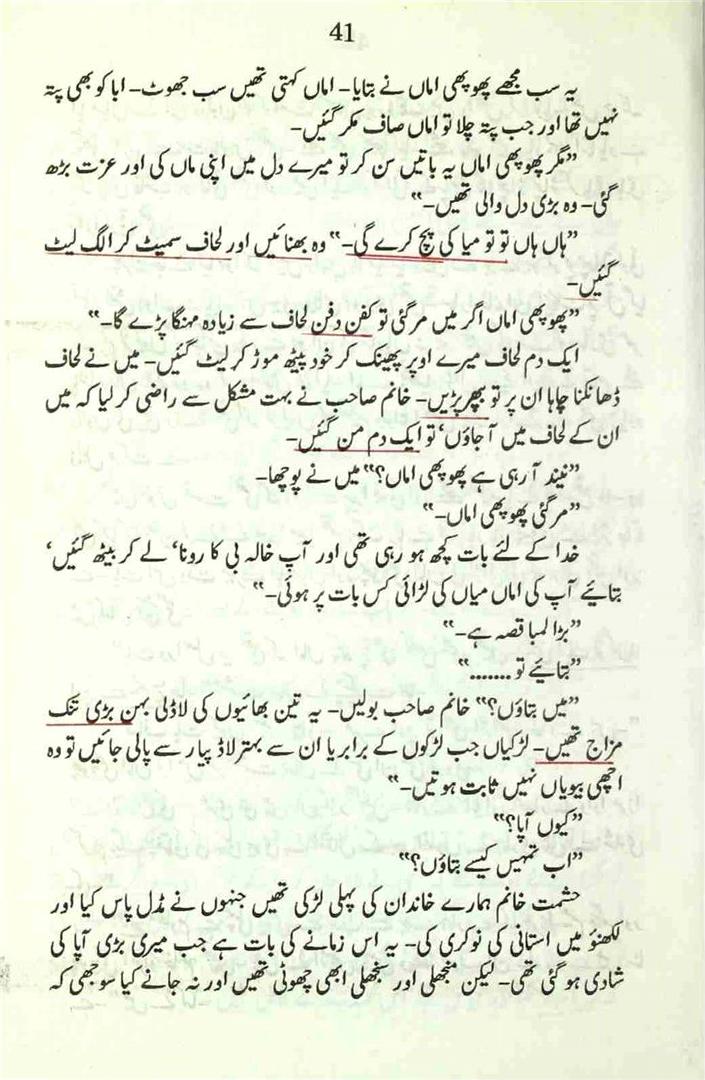 41
یہ سب مجھے پھوپھی اماں نے بتایا۔ اماں کہتی تھیں سب جھوٹ۔ ابا کو بھی پتہ
نہیں تھا اور جب پتہ چلا تو اماں صاف مکر گئیں۔
”مگر پھوپھی اماں یہ باتیں سن کر تو میرے دل میں اپنی ماں کی اور عزت بڑھ
گئی۔ وہ بڑی دل والی تھیں۔“
”ہاں ہاں تو تو میا کی پچ کرے گی۔“ وہ بھنائیں اور لحاف سمیٹ کر الگ لیٹ
گئیں۔
”پھوپھی اماں اگر میں مر گئی تو کفن دفن لحاف سے زیادہ مہنگا پڑے گا۔“
ایک دم لحاف میرے اوپر پھینک کر خود پیٹھ موڑ کر لیٹ گئیں۔ میں نے لحاف
ڈھانکنا چاہا ان پر تو بھر پڑیں۔ خانم صاحب نے بہت مشکل سے راضی کر لیا کہ میں
ان کے لحاف میں آ جاؤں‘ تو ایک دم من گئیں۔
”نیند آ رہی ہے پھوپھی اماں؟“ میں نے پوچھا۔
”مر گئی پھوپھی اماں۔“
خدا کے لئے بات کچھ ہو رہی تھی اور آپ خالہ بی کا رونا‘ لے کر بیٹھ گئیں‘
بتایئے آپ کی اماں میاں کی لڑائی کس بات پر ہوئی۔“
”بڑا لمبا قصہ ہے۔“
”بتایئے تو .......“
”میں بتاؤں؟“ خانم صاحب بولیں۔ یہ تین بھائیوں کی لاڈلی بہن بڑی تنک
مزاج تھیں۔ لڑکیاں جب لڑکوں کے برابر یا ان سے بہتر لاڈ پیار سے پالی جائیں تو وہ
اچھی بیویاں نہیں ثابت ہوتیں۔“
”کیوں آپا؟“
”اب تمہیں کیسے بتاؤں؟“
حشمت خانم ہمارے خاندان کی پہلی لڑکی تھیں جنہوں نے مڈل پاس کیا اور
لکھنؤ میں استانی کی نوکری کی۔ یہ اس زمانے کی بات ہے جب میری بڑی آپا کی
شادی ہو گئی تھی۔ لیکن منجھلی اور سنجھلی ابھی چھوٹی تھیں اور نہ جانے کیا سوجھی کہ